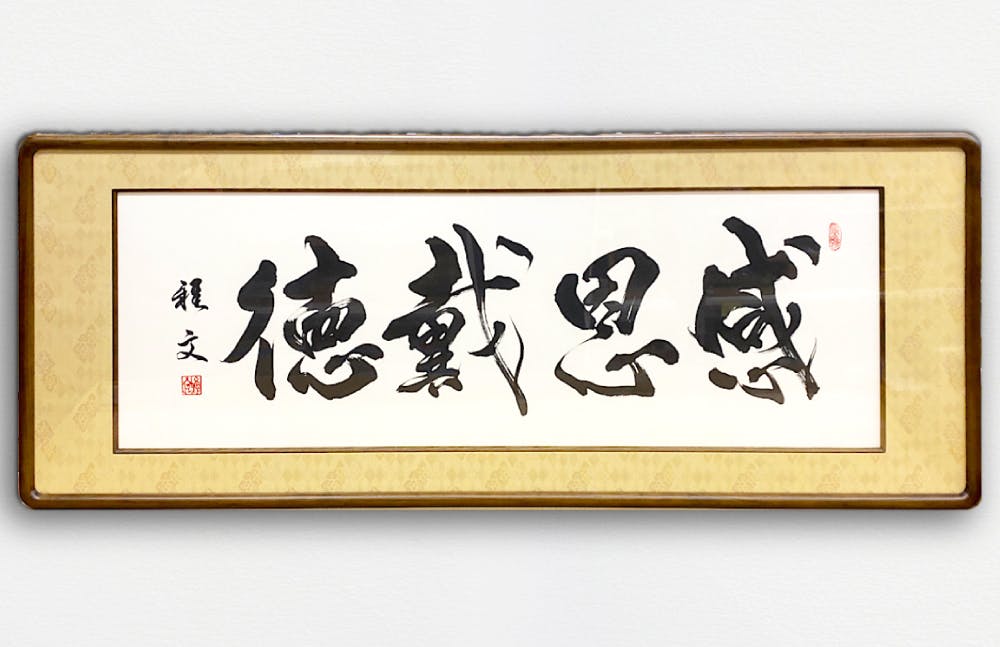 感恩戴德
程文